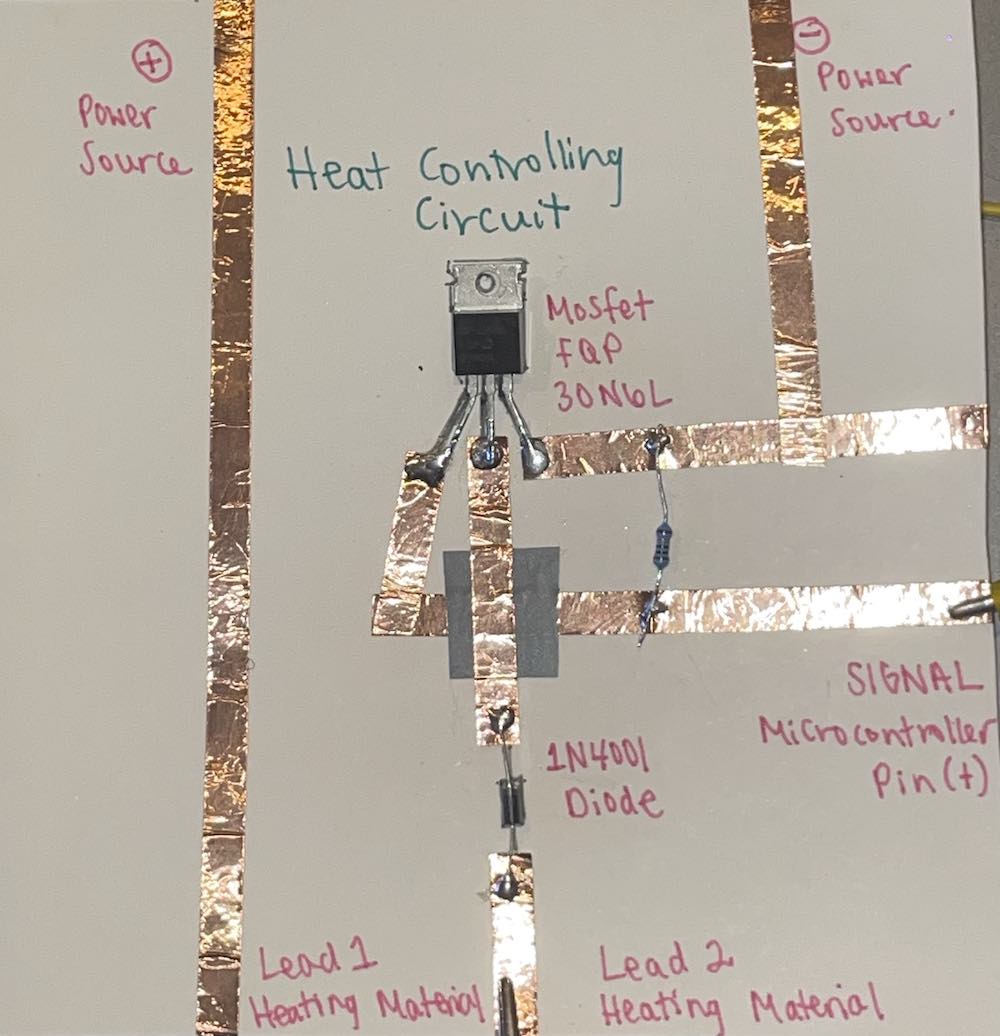 +
Power
Source
-
Power
Source.
Heat Controlling
Circuit
Mosfet
FQP
30N6L
SIGNAL
Microcontroller
Pin (+)
1N4001
Diode
Lead 1
Heating Material
Lead 2
Heating Material